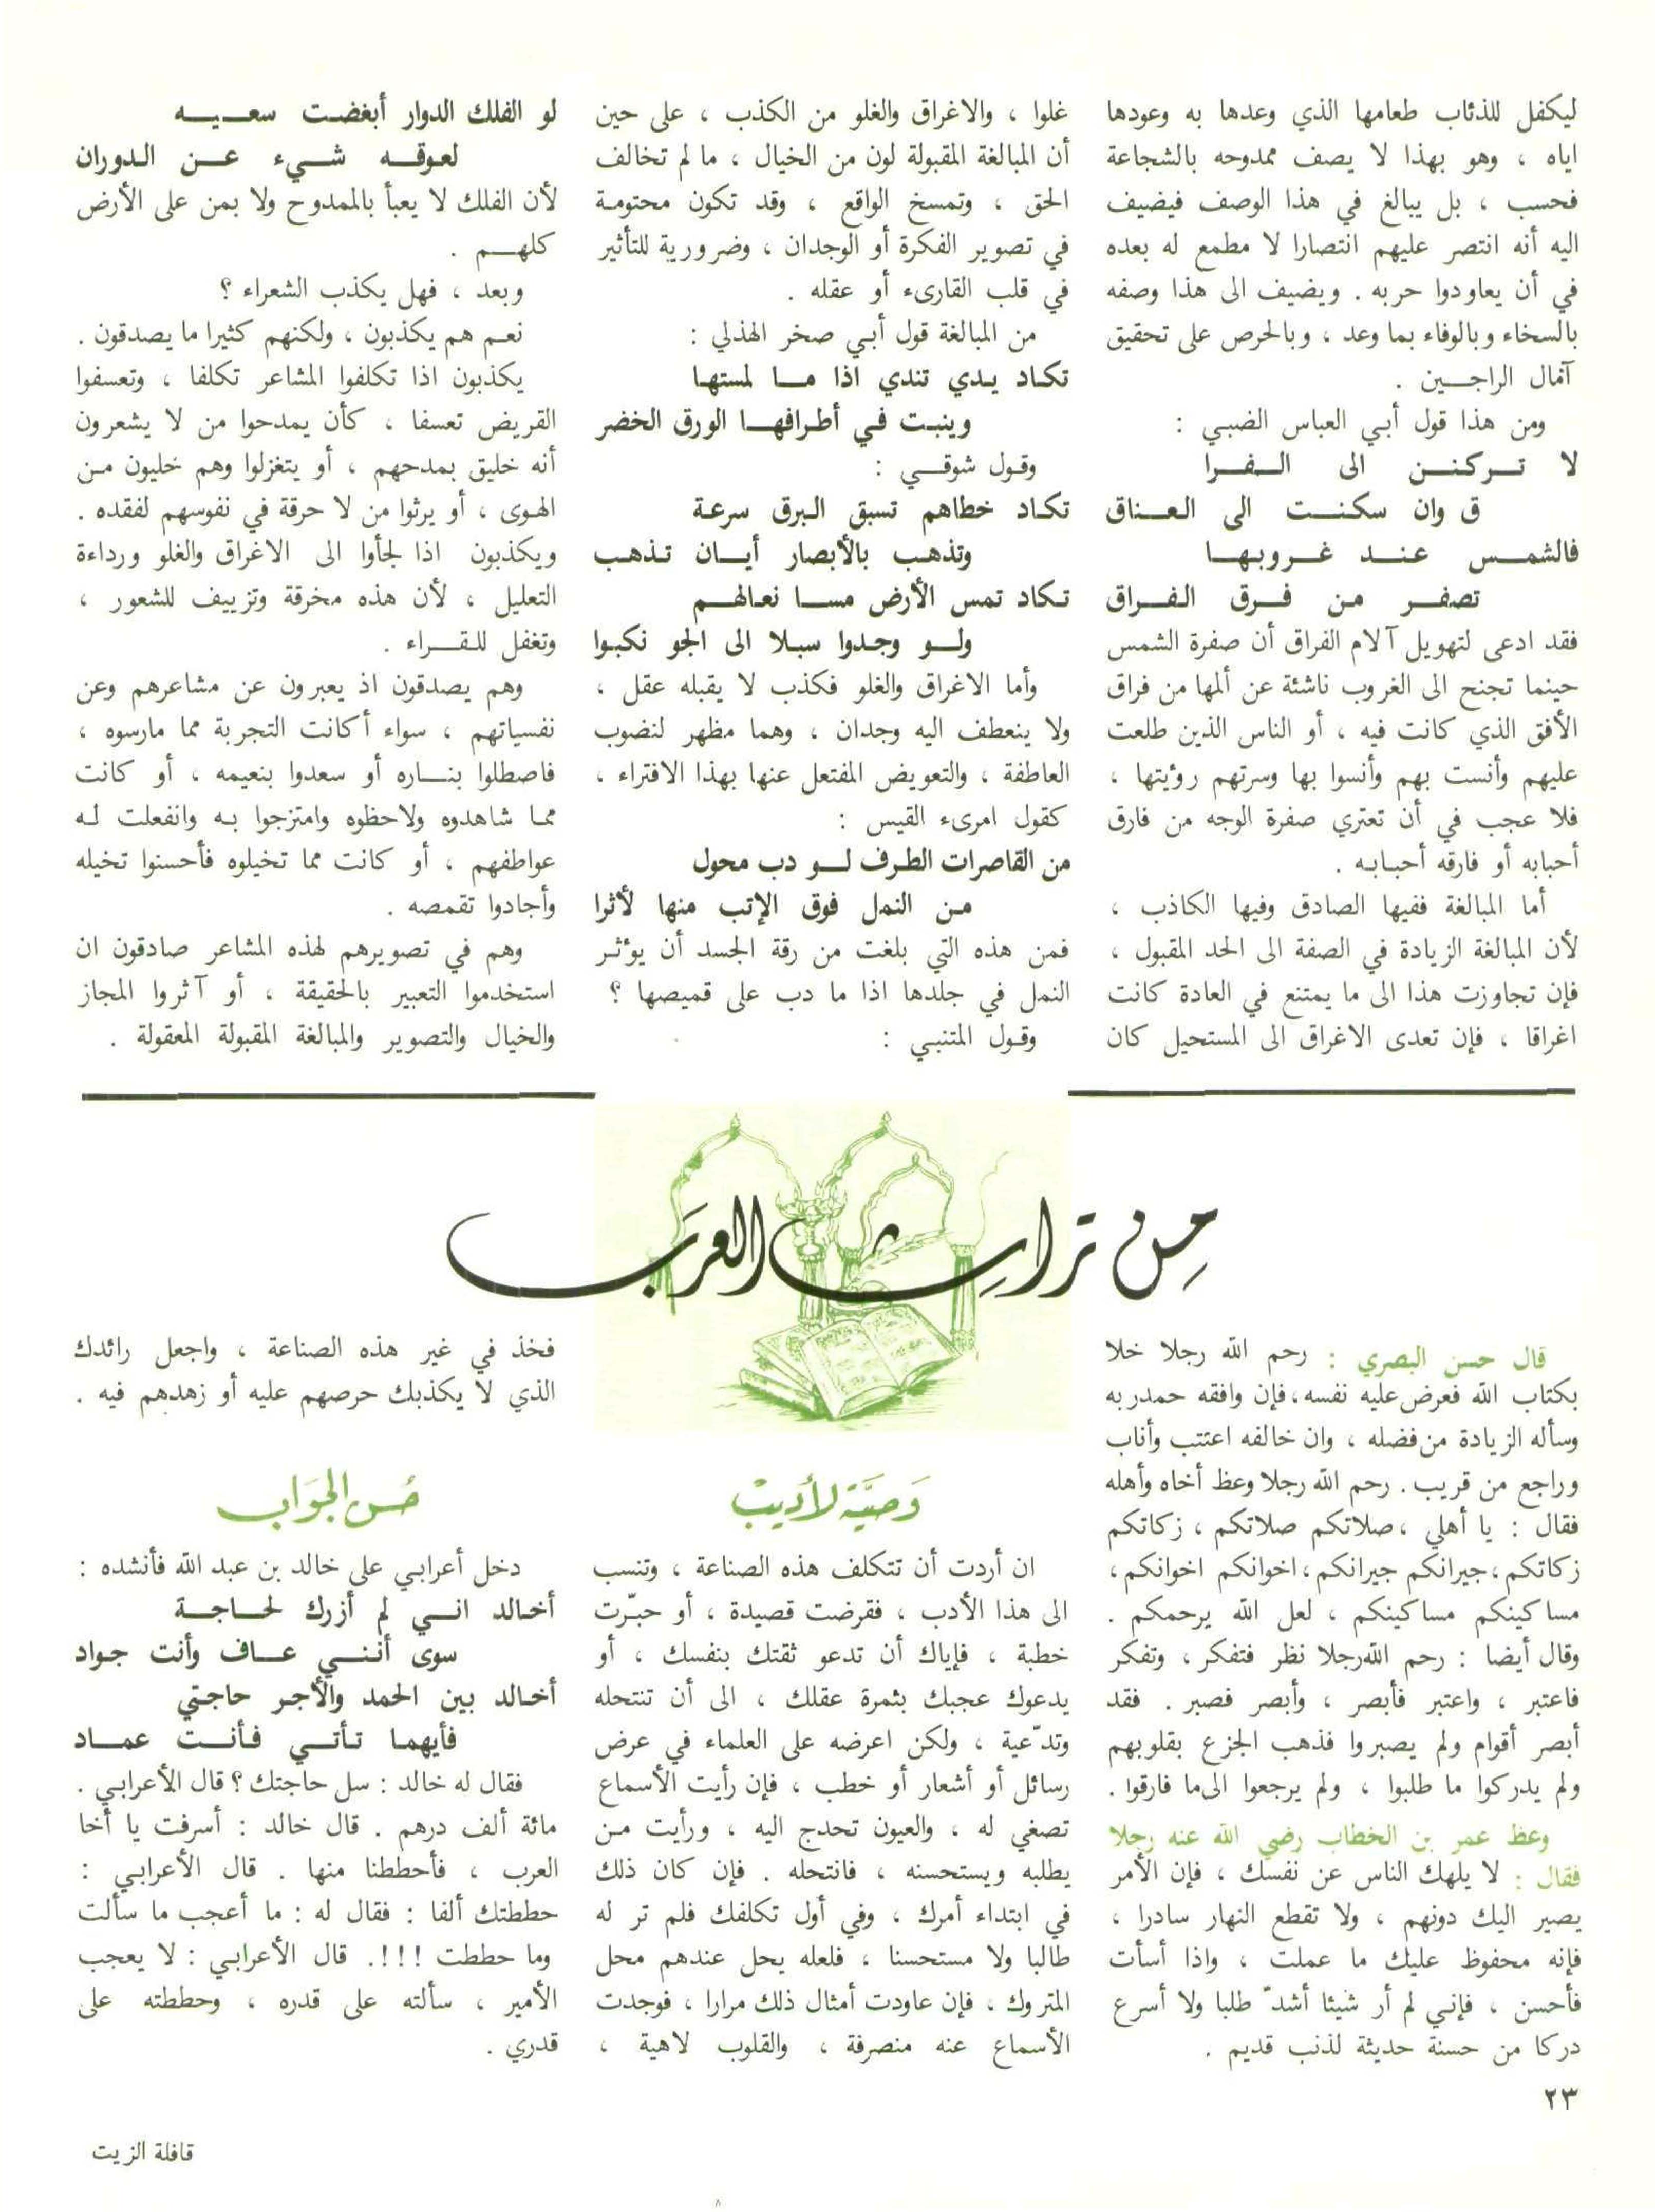 ليكفل للذئاب طعامها الذي وعدها به وعودها
اياه ، وهو بهذا لا يصف ممدوحه بالشجاعة
فحسب ، بل يبالغ في هذا الوصف فيضيف
اليه أنه انتصر عليهم انتصارا لا مطمع له بعده
في أن يعاودوا حربه . ويضيف الى هذا وصفه
بالسخاء وبالوفاء بما وعد ، وبالحرص على تحقيق
آمال الراجـــين .
ومن هذا قول أبي العباس الضبي :
لا تـركنـن الى الـفـرا
ق وان سكنـت الى العـناق
فالشمـس عنـد غـروبهـا
تصفـر من فـرق الفـراق
فقد ادعى لتهويل آلام الفراق أن صفرة الشمس
حينما تجنح الى الغروب ناشئة عن ألمها من فراق
الأفق الذي كانت فيه ، أو الناس الذين طلعت
عليهم وأنست بهم وأنسوا بها وسرتهم رؤيتها ،
فلا عجب في أن تعتري صفرة الوجه من فارق
أحبابه أو فارقه أحبـابـه .
أما المبالغة ففيها الصادق وفيها الكاذب ،
لأن المبالغة الزيادة في الصفة الى الحد المقبول ،
فإن تجاوزت هذا الى ما يمتنع في العادة كانت
اغراقا ، فإن تعدى الاغراق الى المستحيل كان
غلوا ، والاغراق والغلو من الكذب ، على حين
أن المبالغة المقبولة لون من الخيال ، ما لم تخالف
الحق ، وتمسخ الواقع ، وقد تكون محتومة
في تصوير الفكرة أو الوجدان ، وضرورية للتأثير
في قلب القارىء أو عقله .
من المبالغة قول أبي صخر الهذلي :
تكـاد يـدي تندي اذا مـا لمستهـا
وينبـت فـي أطـرافهـا الورق الخضر
وقـول شوقــي :
تكـاد خطاهم تسبق الـبرق سرعـة
وتذهـب بالأبصار أيـان تـذهـب
تـكاد تمس الأرض مسـا نعـالهـم
ولـو وجـدوا سبـلا الى الجو نكبـوا
وأما الاغراق والغلو فكذب لا يقبله عقل ،
ولا ينعطف اليه وجدان ، وهما مظهر لنضوب
العاطفة ، والتعويض المفتعل عنها بهذا الافتراء ،
كقول امرىء القيس :
من القاصرات الطـرف لـو دب محول
مـن النمل فوق الإتب منها لأثرا
فمن هذه التي بلغت من رقة الجسد أن يؤثـر
النمل في جلدها اذا ما دب على قميصها ؟
وقـول المتنبي :
لو الفلك الدوار أبغضـت سعـيـه
لعـوقـه شـيء عـن الـدوران
لأن الفلك لا يعبأ بالممدوح ولا بمن على الأرض
كلهــم .
وبعد ، فهل يكذب الشعراء ؟
نعـم هم يكذبون ، ولكنهم كثيرا ما يصدقون .
يكذبون اذا تكلفوا المشاعر تكلفا ، وتعسفوا
القريض تعسفا ، كأن يمدحوا من لا يشعرون
أنه خليق بمدحهم ، أو يتغزلوا وهم خليون مـن
الهوى ، أو يرثوا من لا حرقة في نفوسهم لفقده .
ويكذبون اذا لجأوا الى الاغراق والغلو ورداءة
التعليل ، لأن هذه مخرقة وتزييف للشعور ،
وتغفل للـقــراء .
وهم يصدقون اذ يعبرون عن مشاعرهم وعن
نفسياتهم ، سواء أكانت التجربة مما مارسوه ،
فاصطلوا بنـاره أو سعدوا بنعيمه ، أو كانت
ممـا شاهدوه ولاحظوه وامتزجوا بـه وانفعلت لـه
عواطفهم ، أو كانت مما تخيلوه فأحسنوا تخيله
وأجادوا تقمصه .
وهم في تصويرهم لهذه المشاعر صادقون ان
استخدموا التعبير بالحقيقة ، أو آثروا المجاز
والخيال والتصوير والمبالغة المقبولة المعقولة .
مِن تراثِ العرَب
قال حسن البصري : رحم الله رجلا خلا
بكتاب الله فعرض عليه نفسه، فإن وافقه حمدربه
وسأله الزيادة من فضله ، وان خالفه اعتتب وأناب
وراجع من قريب . رحم الله رجلا وعظ أخاه وأهله
فقال : يا أهلي ، صلاتكم صلاتكم ، زكاتكم
زكاتكم، جيرانكم جيرانكم، اخوانكم اخوانكم،
مساكينكم مساكينكم ، لعل الله يرحمكم .
وقال أيضا : رحم الله رجلا نظر فتفكر ، وتفكر
فاعتبر ، واعتبر فأبصر ، وأبصر فصبر . فقد
أبصر أقوام ولم يصبروا فذهب الجزع بقلوبهم
ولم يدركوا ما طلبوا ، ولم يرجعوا الى ما فارقوا .
وعظ عمر بن الخطاب رضي الله عنه رجلا
فقال : لا يلهك الناس عن نفسك ، فإن الأمر
يصير اليك دونهم ، ولا تقطع النهار سادرا ،
فإنه محفوظ عليك ما عملت ، واذا أسأت
فأحسن ، فإني لم أر شيئا أشدّ طلبا ولا أسرع
دركا من حسنة حديثة لذنب قديم .
وَصيَّة لأديبْ
ان أردت أن تتكلف هذه الصناعة ، وتنسب
الى هذا الأدب ، فقرضت قصيدة ، أو حبّرت
خطبة ، فإياك أن تدعو ثقتك بنفسك ، أو
يدعوك عجبك بثمرة عقلك ، الى أن تنتحله
وتدّعية ، ولكن اعرضه على العلماء في عرض
رسائل أو أشعار أو خطب ، فإن رأيت الأسماع
تصغي له ، والعيون تحدج اليه ، ورأيت مـن
يطلبه ويستحسنه ، فانتحله . فإن كان ذلك
في ابتداء أمرك ، وفي أول تكلفك فلم تر له
طالبا ولا مستحسنا ، فلعله يحل عندهم محل
المتروك ، فإن عاودت أمثال ذلك مرارا ، فوجدت
الأسماع عنه منصرفة ، والقلوب لاهية ،
فخذ في غير هذه الصناعة ، واجعل رائدك
الذي لا يكذبك حرصهم عليه أو زهدهم فيه .
حُسن الجوَاب
دخل أعرابي على خالد بن عبد الله فأنشده :
أخـالد انـي لم أزرك لحـاجـة
سوى أنـنـي عـاف وأنت جـواد
أخـالد بين الحمد والأجـر حاجتي
فأيهمـا تـأتـي فـأنـت عمـاد
فقال له خالد : سل حاجتك ؟ قال الأعرابي .
مائة ألف درهم . قال خالد : أسرفت يا أخا
العرب ، فأحططنا منها . قال الأعرابي :
حططتك ألفا : فقال له : ما أعجب ما سألت
وما حططت !!!. قال الأعرابي : لا يعجب
الأمير ، سألته على قدره ، وحططته على
قدري .
٢٣
قافلة الزيت
٨